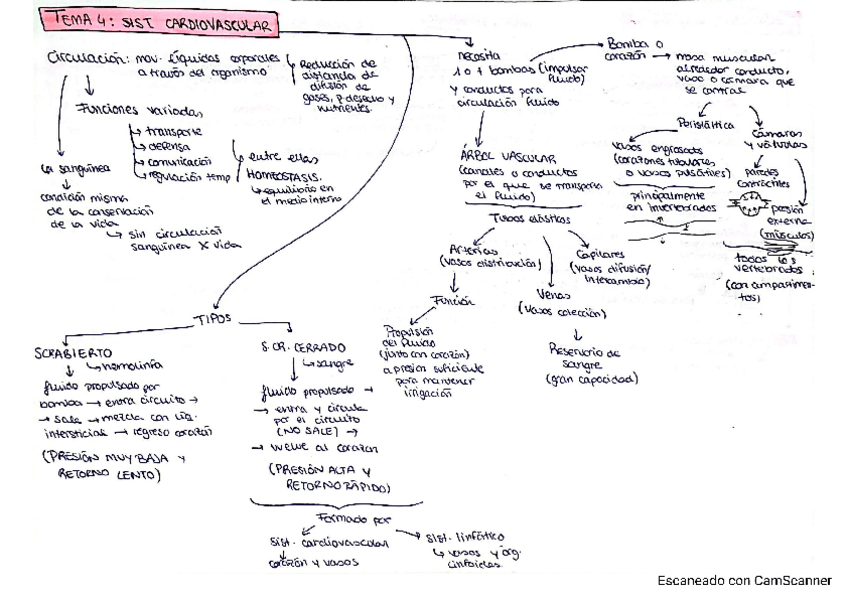 TEMA 4: SIST. CARDIOVASCULAR
Circulación: mov. líquidos corporales
a través del organismo
Reducción de
distancia de
difusión de
gases, p. desecho y
nutrientes.
Funciones variadas
transporte
defensa
comunicación
regulación temp
entre ellas
HOMEOSTASIS.
equilibrio en
el medio interno
La sanguínea
condición misma
de la conservación
de la vida
sin circulación
sanguínea X vida
necesita
1 o + bombas (impulsar
fluido)
y conductos para
circulación fluido
Bomba o
corazón
masa muscular
alrededor conducto,
vaso o cámara que
se contrae
Peristáltica
vasos engrosados
(corazones tubulares
o vasos pulsátiles)
principalmente
en invertebrados
Cámaras
y válvulas
paredes
contráctiles
presión
externa
(músculos)
todos los
vertebrados
(con compartimen-
tos)
ÁRBOL VASCULAR
(canales o conductos
por el que se transporta
el fluido)
Tubos elásticos
Arterias
(vasos distribución)
Función
Propulsión
del fluido
(junto con corazón)
a presión suficiente
para mantener
irrigación
Venas
(vasos colección)
Reservorio de
sangre
(gran capacidad)
Capilares
(vasos difusión/
intercambio)
TIPOS
S.CR ABIERTO
hemolinfa
fluido propulsado por
bomba → entra circuito →
→ sale → mezcla con líq.
intersticial → regreso corazón
(PRESIÓN MUY BAJA y
RETORNO LENTO)
S. CR. CERRADO
sangre
fluido propulsado →
→ entra y circula
por el circuito
(NO SALE) →
→ vuelve al corazón
(PRESIÓN ALTA y
RETORNO RÁPIDO)
Formado por
sist. cardiovascular
corazón y vasos
sist. linfático
vasos y órg.
linfoides
Escaneado con CamScanner